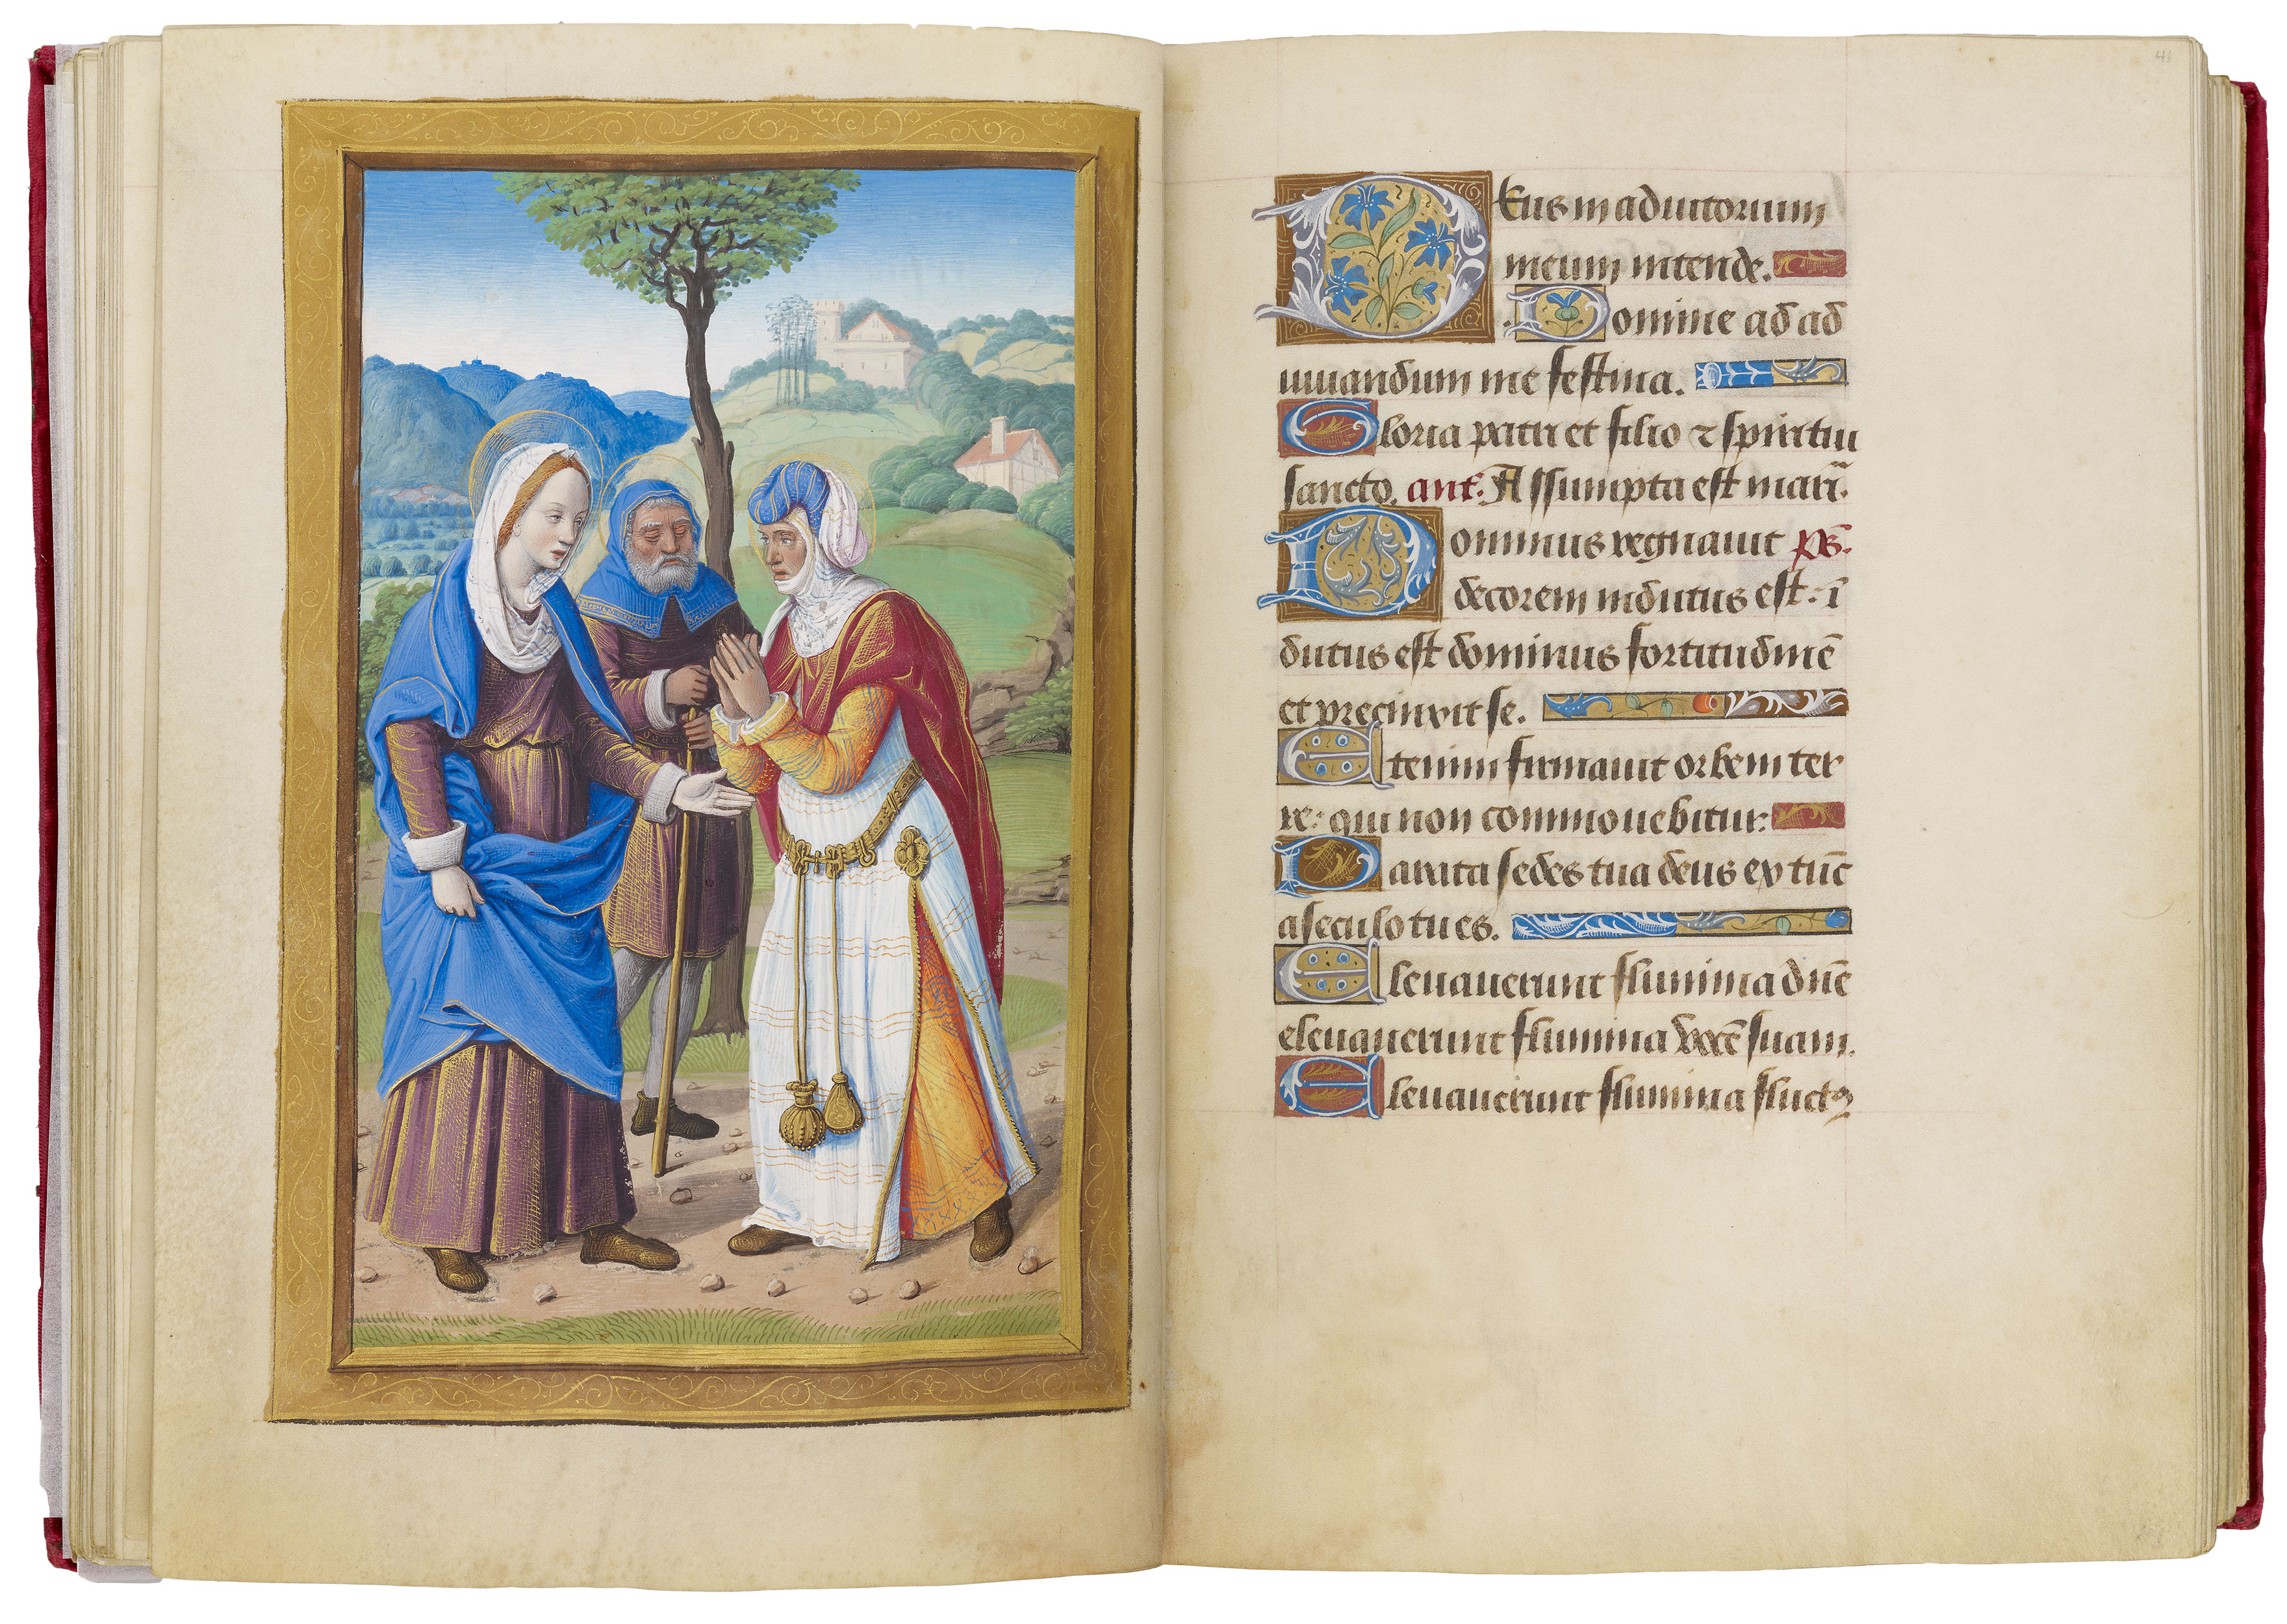 41
Deus in adiutorium
meum intende.
Domine ad ad
iuuandum me festina.
Gloria patri et filio ⁊ spiritui
sancto. ant. Assumpta est mari̅a.
Dominus regnauit ps̅.
decorem indutus est: i̅
dutus est dominus fortitudine̅
et precinxit se.
Etenim firmauit orbem ter
re: qui non commouebitur.
Parata sedes tua deus ex tu̅c
a seculo tu es.
Eleuauerunt flumina dn̅e
eleuauerunt flumina voce̅ suam.
Eleuauerunt flumina fluctꝰ